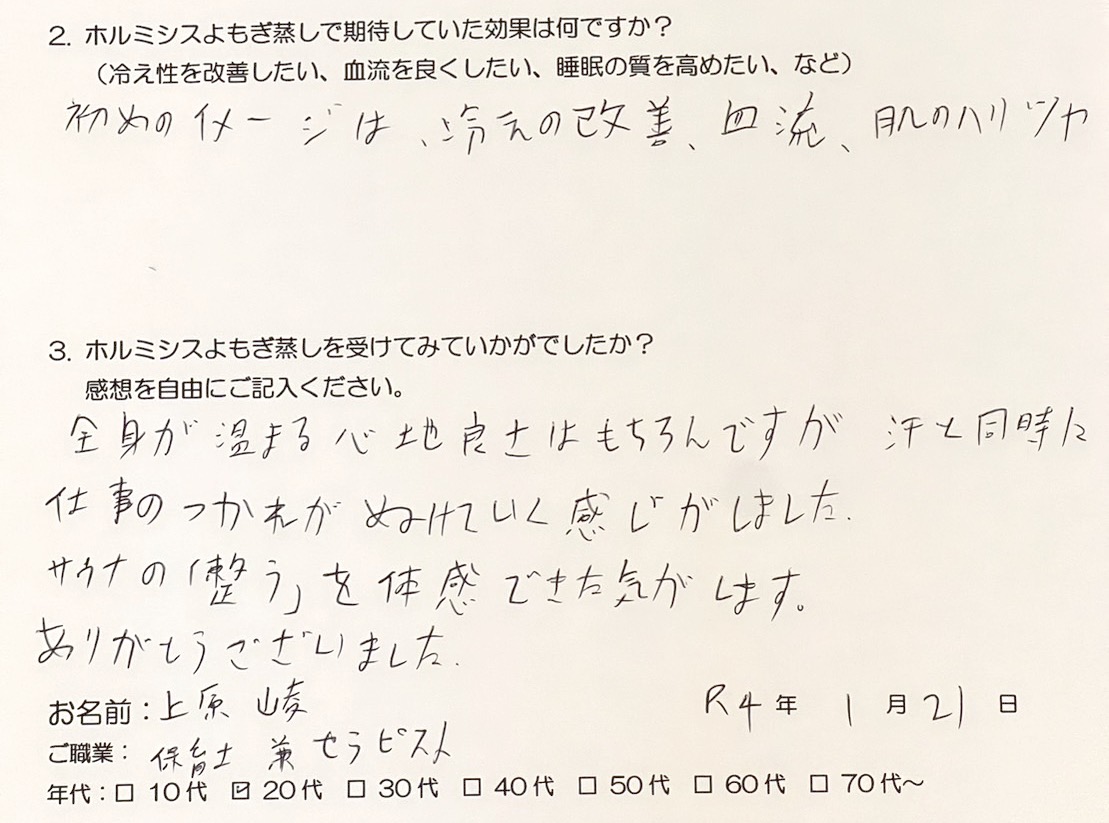 2. ホルミシスよもぎ蒸しで期待していた効果は何ですか？
（冷え性を改善したい、血流を良くしたい、睡眠の質を高めたい、など）
初めのイメージは、冷えの改善、血流、肌のハリツヤ
3. ホルミシスよもぎ蒸しを受けてみていかがでしたか？
感想を自由にご記入ください。
全身が温まる心地良さはもちろんですが 汗と同時に
仕事のつかれがぬけていく感じがしました.
サウナの「整う」を体感できた気がします。
ありがとうございました.
お名前：上原 崚 R4年 1月21日
ご職業：保育士 兼 セラピスト
年代：□ 10代 ☑ 20代 □ 30代 □ 40代 □ 50代 □ 60代 □ 70代～